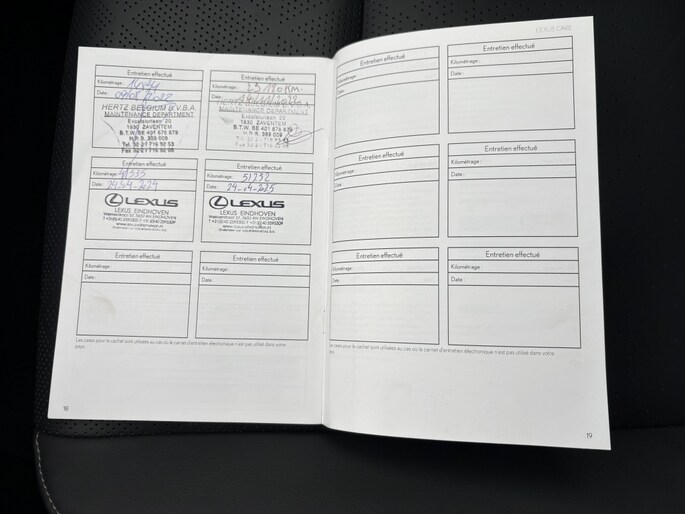 Entretien effectué
Kilométrage:
Date: 09/05/2022
HERTZ BELGIUM B.V.B.A.
MAINTENANCE DEPARTMENT
Excelsiorlaan 20
1930 ZAVENTEM
B.T.W. BE 401 676 879
H.R.B. 389 009
Entretien effectué
Kilométrage: 23180 KM
Date:
HERTZ BELGIUM B.V.B.A.
MAINTENANCE DEPARTMENT
Excelsiorlaan 20
1930 ZAVENTEM
B.T.W. BE 401 676 879
H.R.B. 389 009
Entretien effectué
Kilométrage:
Date: 24-04-2024
LEXUS
LEXUS EINDHOVEN
Entretien effectué
Kilométrage: 51232
Date: 24-04-2025
LEXUS
LEXUS EINDHOVEN
Entretien effectué
Kilométrage:
Date:
Entretien effectué
Kilométrage:
Date:
Les cases pour le cachet sont utilisées au cas où le carnet d'entretien électronique n'est pas utilisé dans votre
pays.
LEXUS CARE
Entretien effectué
Kilométrage:
Date:
Entretien effectué
Kilométrage:
Date:
Entretien effectué
Kilométrage:
Date:
Entretien effectué
Kilométrage:
Date:
Entretien effectué
Kilométrage:
Date:
Entretien effectué
Kilométrage:
Date:
Les cases pour le cachet sont utilisées au cas où le carnet d'entretien électronique n'est pas utilisé dans votre
pays.
19